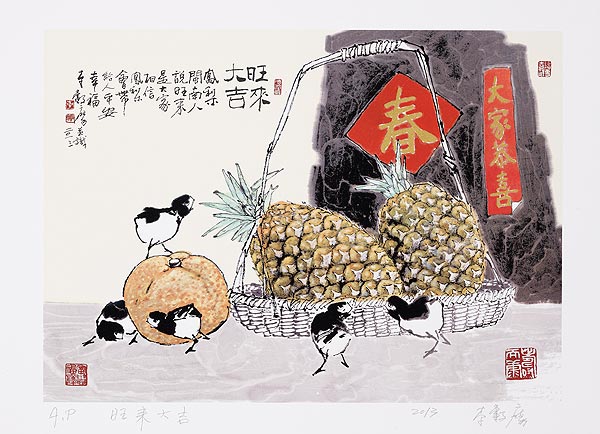 大家恭喜
春
旺來
大吉
鳳梨
閩南人
說旺來
是大家
相信
鳳梨
會帶
給人平安
幸福
A.P 旺来大吉 2013 李轂摩